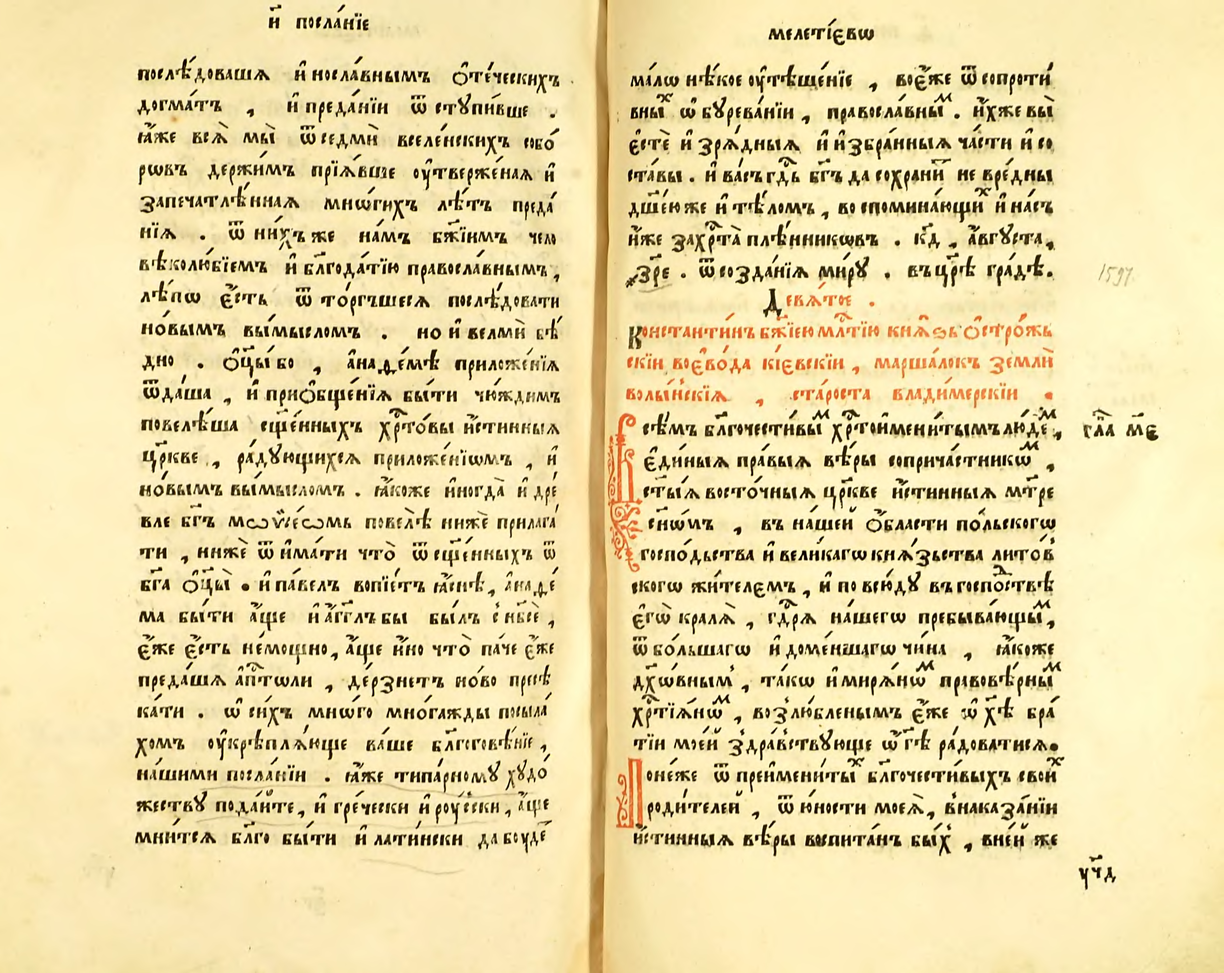 и҃ посла́нїе
послѣ́довашѧ и҆нославнымъ ѻ҆те́ческихъ
догматъ , и҆ преда́нїи ѿстꙋпи́вше .
ꙗ҆́же всѧ̀ мы̀ ѿ седмѝ вселе́нскихъ собо́
рѡвъ держи́мъ прїѧ́вше оу҆твержена́ѧ и҆
запечатлѣ́ннаѧ мнѡ́гихъ лѣ́тъ преда́
нїѧ . ѿ ни́хъ же на́мъ бж҃їимъ чело
вѣколю́бїемъ и҆ блг҃ода́тїю православнымъ ,
лѣ́пѡ є҆́сть ѿто́ргъшесѧ послѣ́довати
но́вымъ вы́мысломъ . но и҆ велмѝ бѣ́
дно . ѻ҆ц҃ы́ бо , а҆на́ѳемѣ приложе́нїѧ
ѿда́ша , и҆ прїѻбще́нїѧ бы́ти чю́ждимъ
повелѣ́ша сщ҃е́нныхъ хрⷭ҇то́вы и҆́стинныѧ
цр҃кве , ра́дꙋющихсѧ приложе́нїѡмъ , и҆
но́вымъ вы́мысломъ . ꙗ҆́коже и҆ногда̀ и҆ дрѐ
вле бг҃ъ мѡѷсе́ѡмь повелѣ̀ нижѐ прилага́
ти , нижѐ ѿима́ти что̀ ѿ сщ҃е́нныхъ ѿ
бг҃а ѻ҆ц҃ы̀ . и҆ па́велъ вопїе́тъ ꙗ҆́снѣ , а҆на́ѳе
ма бы́ти а҆́ще и҆ а҆́гг҃лъ бы бы́лъ с нб҃сѐ ,
є҆́же є҆́сть немо́щно , а҆́ще и҆́но что̀ па́че є҆́же
преда́шѧ а҆пⷭ҇толи , де́рзнетъ но́во пресѣ
ка́ти . ѡ҆ си́хъ мнѡ́го мно́гажды посыла́
хомъ оу҆крѣплѧ́юще ва́ше блг҃оговѣ́нїе ,
на́шими посла́нїи . ꙗ҆́же типа́рномꙋ хꙋдо́
жествꙋ пода́йте , и҆ гре́чески и҆ роу́сски , а҆́ще
мни́тсѧ бл҃го бы́ти и҆ лати́нски да боуде́
меле́тїєвѡ
ма́лѡ нѣ́кое оу҆тѣше́нїе , воє҆́же ѿ сопроти́
вныⷯ ѡ҆бꙋрева́нїи , правосла́вныⷨ . и҆́хже вы̀
є҆стѐ и҆зрѧ́дныѧ и҆ и҆збра́нныѧ ча́сти и҆ со
ста́вы . и҆ ва́съ гдⷭ҇ь бг҃ъ да сохрани́тъ не вре́дны
дш҃е́ю же и҆ тѣ́ломъ , воспомина́ющиⷯ и҆ на́съ
и҆́же за хрⷭ҇та̀ плѣ́нникѡвъ . к҃д , а҆́вгꙋста ,
҂зр҃е . ѿ созда́нїѧ ми́рꙋ . въ цр҃ѣ гра́дѣ .
1597
Девѧ́тое .
Константи́нъ бж҃їею млⷭ҇тїю кнѧ́зь ѻ҆стро́жь
скїи воєво́да кїєвскїи , ма́ршалокъ землѝ
волы́нскїѧ , ста́роста влади́мерскїи .
Всѣ́мъ блг҃очести́выⷨ хрⷭ҇тоимени́тымъ лю́деⷨ ,
є҆ди́ныѧ пра́выѧ вѣ́ры соприча́стникѡⷨ ,
ст҃ы́ѧ восто́чныѧ цр҃кве и҆́стинныѧ мт҃ре
сн҃ѡ́мъ , въ на́шей ѻ҆́бласти по́льскогѡ
госпо́дьства и҆ вели́кагѡ кнѧ́зьства лито́в
скогѡ жи́телемъ , и҆ по всю́дꙋ въ госпоⷣствѣ
є҆гѡ̀ кралѧ̀ , гдⷭ҇рѧ на́шегѡ пребыва́ющыⷨ ,
ѿ бо́льшагѡ и҆ до ме́ншагѡ чи́на , ꙗ҆́коже
дх҃о́внымъ , та́кѡ и҆ мирѧ́нѡⷨ правовѣ́рныⷨ
хрⷭ҇тїѧ́нѡⷨ , возлю́бленымъ є҆́же ѡ҆ хⷭ҇ѣ бра́
тїи мое́й здра́вствꙋюще ѡ҆ гⷭ҇ѣ ра́доватисѧ .
Поне́же ѿ преимени́тыⷯ блг҃очести́выхъ свои́ⷯ
роди́телей , ѿ ю҆́ности моеѧ̀ , в наказа́нїи
и҆́стинныѧ вѣ́ры воспита́нъ бы́хъ , в не́й же
гла҃ м҃є
оу҆чд